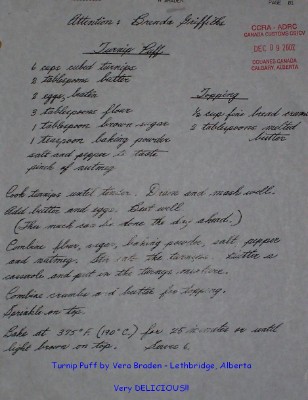 H BRADEN PAGE 01
Attention: Brenda Griffiths
CCRA - ADRC
CANADA CUSTOMS
DEC 09 2002
CALGARY, ALBERTA
Turnip Puff
6 cups cubed turnips
2 tablespoons butter
2 eggs, beaten
3 tablespoons flour
1 tablespoon brown sugar
1 teaspoon baking powder
salt and pepper to taste
pinch of nutmeg
Topping
½ cup fine bread crumbs
2 tablespoons melted
butter
Cook turnips until tender. Drain and mash well.
Add butter and eggs. Beat well.
(This much can be done the day ahead.)
Combine flour, sugar, baking powder, salt pepper
and nutmeg. Stir into the turnips. Butter a
casserole and put in the turnip mixture.
Combine crumbs and butter for topping.
Sprinkle on top.
Bake at 375°F. (190°C.) for 25 minutes or until
light brown on top. Serves 6.
Turnip Puff by Vera Braden - Lethbridge, Alberta
Very DELICIOUS!!